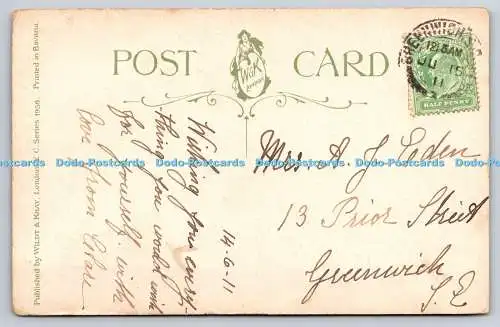 POST CARD
W&K
GREENWICH S.E
12.15AM
JU 15
11
HALF PENNY
Published by WILDT & KRAY, London, E.C. Series 1956. Printed in Bavaria.
14-6-11
Wishing you every-
thing you would wish
for yourself with
love from
Miss A. J. Leden
13 Prior Street
Greenwich
S.E
Dodo-Postcards Dodo-Postcards Dodo-Postcards Dodo-Postcards Dodo-Postcards Dodo-Postcards